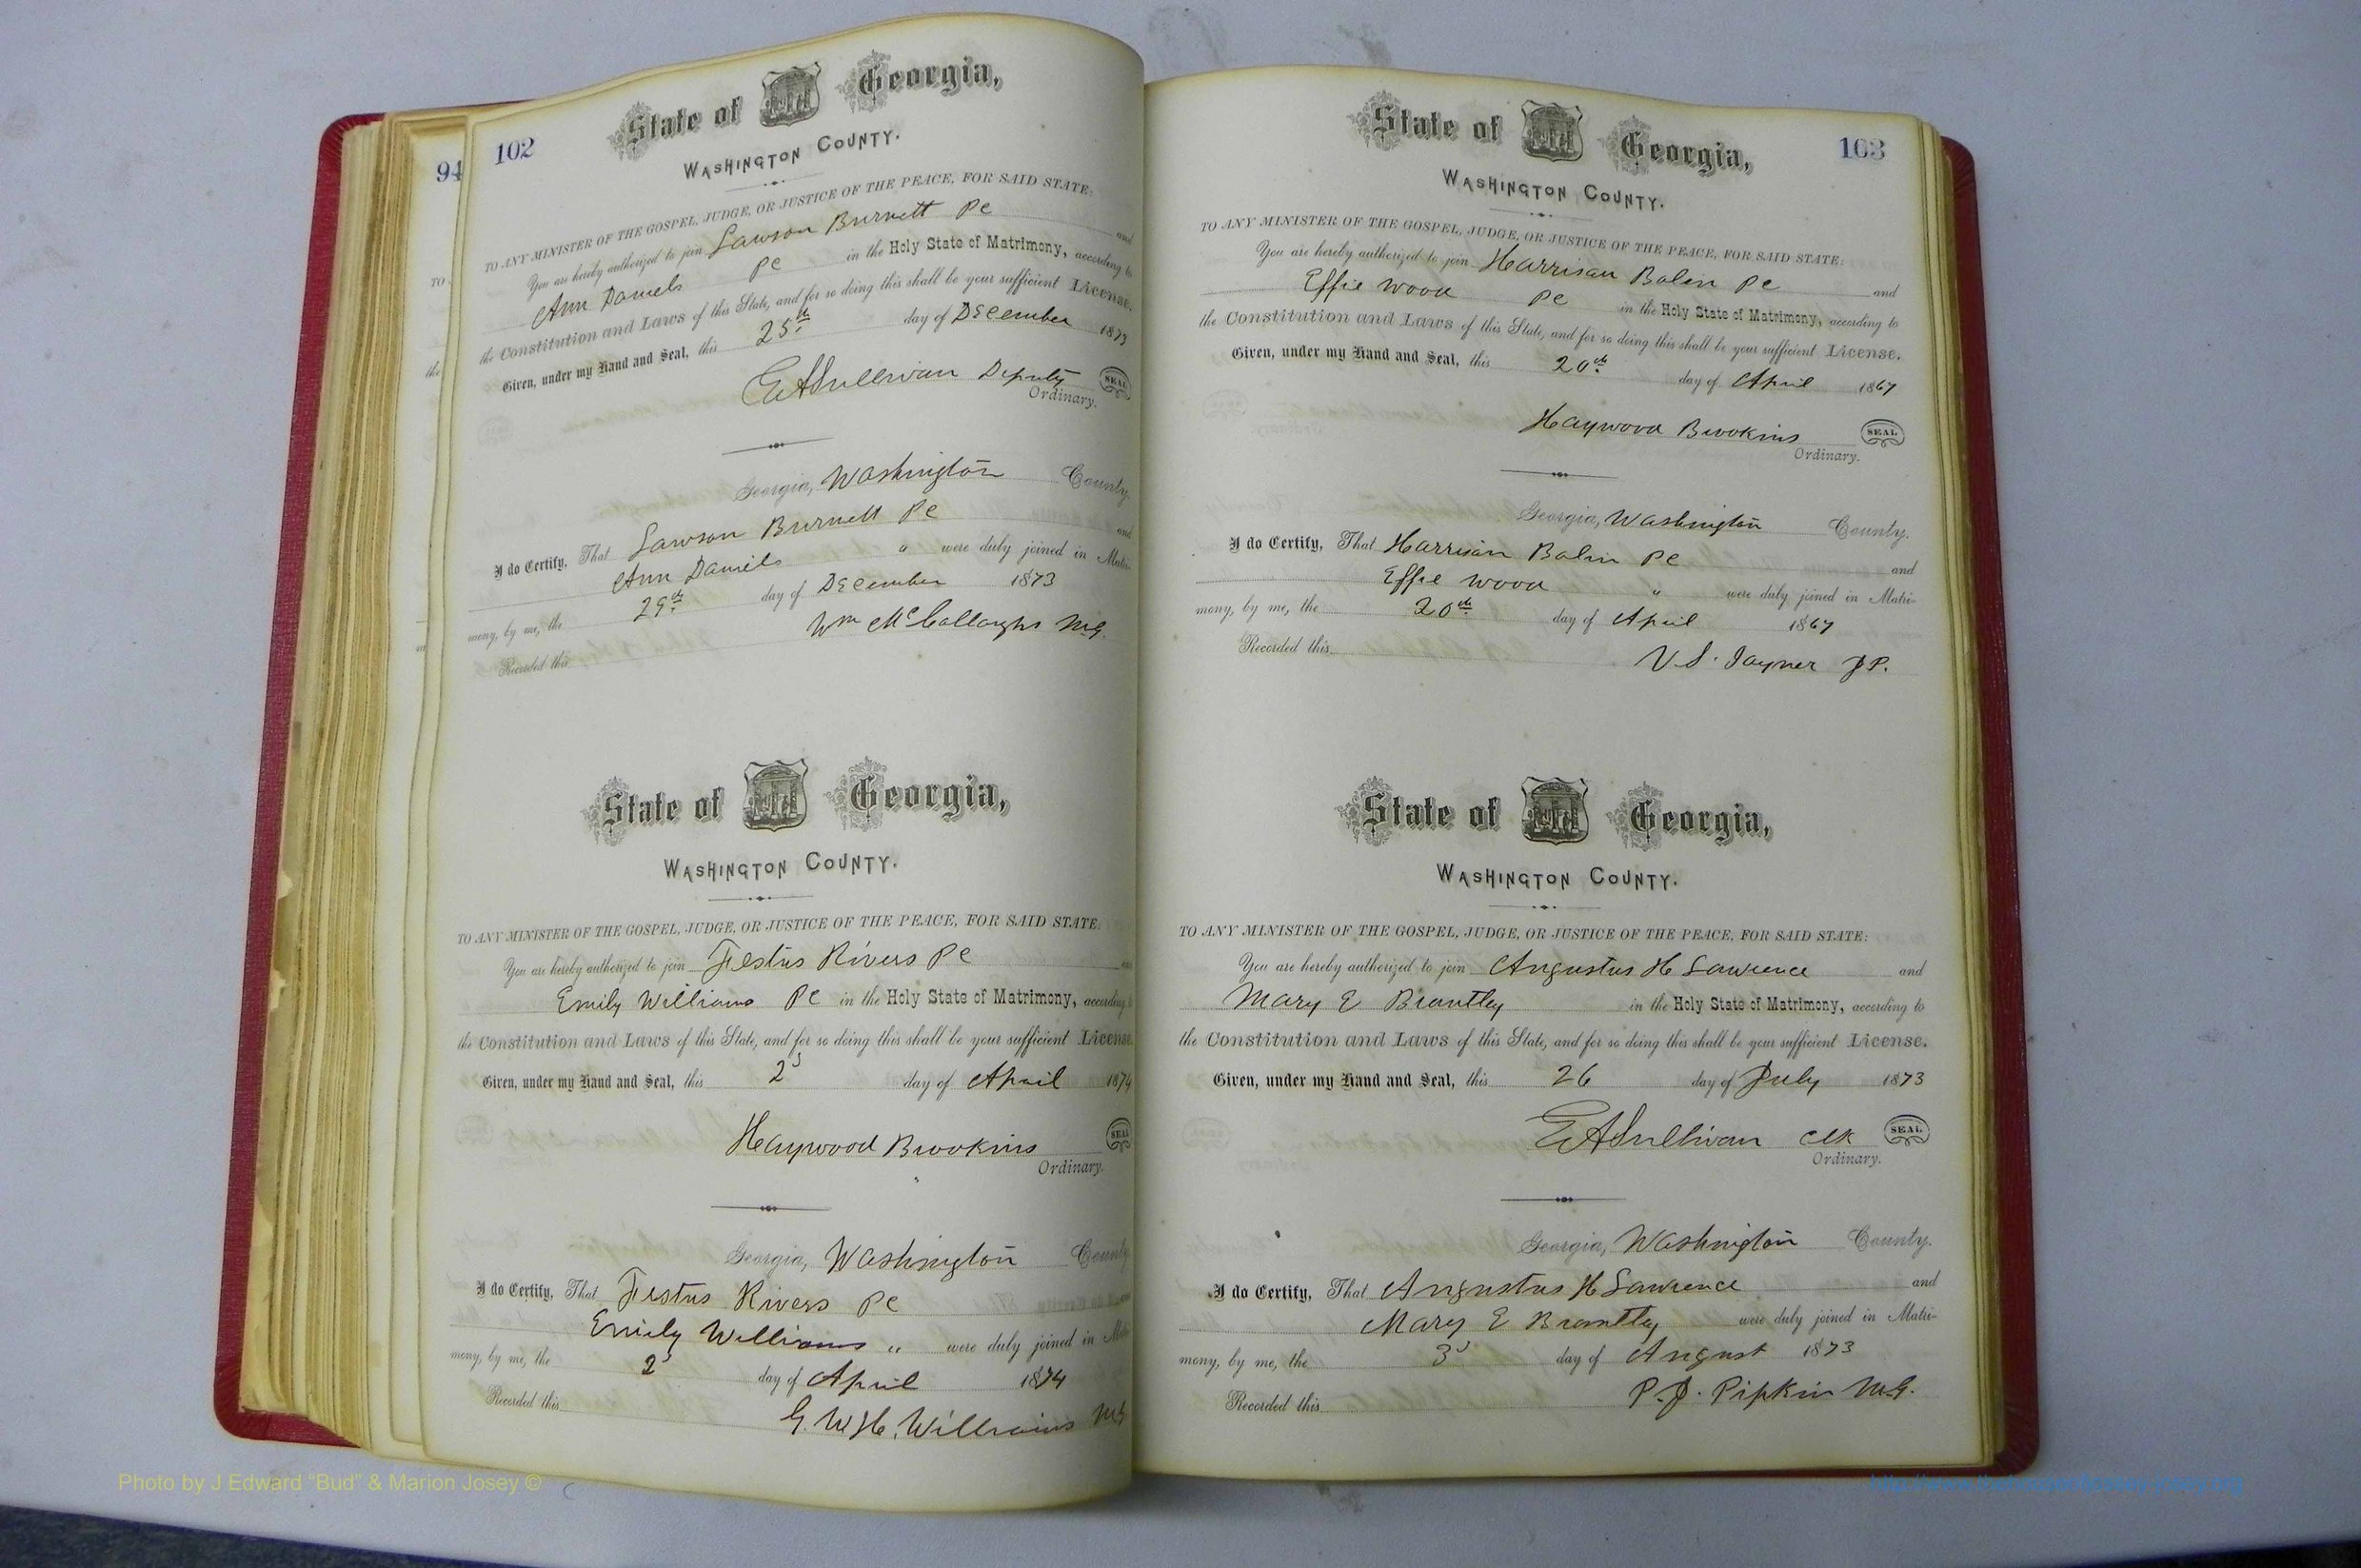 94
TO
the
102
State of Georgia,
WASHINGTON COUNTY.
TO ANY MINISTER OF THE GOSPEL, JUDGE, OR JUSTICE OF THE PEACE, FOR SAID STATE:
You are hereby authorized to join Lawson Burnett Pc and
Ann Daniels Pc in the Holy State of Matrimony, according to
the Constitution and Laws of this State, and for so doing this shall be your sufficient License.
Given, under my Hand and Seal, this 25th day of December 1873
E A Sullivan Deputy SEAL
Ordinary.
Georgia, Washington County.
I do Certify, That Lawson Burnett Pc and
Ann Daniels " were duly joined in Matri-
mony, by me, the 29th day of December 1873
Wm McCollough MG.
Recorded this
State of Georgia,
WASHINGTON COUNTY.
TO ANY MINISTER OF THE GOSPEL, JUDGE, OR JUSTICE OF THE PEACE, FOR SAID STATE:
You are hereby authorized to join Festus Rivers Pc and
Emily Williams Pc in the Holy State of Matrimony, according
the Constitution and Laws of this State, and for so doing this shall be your sufficient License.
Given, under my Hand and Seal, this 2d day of April 1874
Haywood Brookins SEAL
Ordinary.
Georgia, Washington County
I do Certify, That Festus Rivers Pc
Emily Williams " were duly joined in Matri
mony, by me, the 2d day of April 1874
Recorded this
G. W. H. Williams MG
103
State of Georgia,
WASHINGTON COUNTY.
TO ANY MINISTER OF THE GOSPEL, JUDGE, OR JUSTICE OF THE PEACE, FOR SAID STATE:
You are hereby authorized to join Harrison Bolin Pc and
Effie Wood Pc in the Holy State of Matrimony, according to
the Constitution and Laws of this State, and for so doing this shall be your sufficient License.
Given, under my Hand and Seal, this 20th day of April 1867
Haywood Brookins SEAL
Ordinary.
Georgia, Washington County.
I do Certify, That Harrison Bolin Pc and
Effie Wood " were duly joined in Matri-
mony, by me, the 20th day of April 1867
Recorded this
V. S. Joyner JP.
State of Georgia,
WASHINGTON COUNTY.
TO ANY MINISTER OF THE GOSPEL, JUDGE, OR JUSTICE OF THE PEACE, FOR SAID STATE:
You are hereby authorized to join Augustus H Lawrence and
Mary E Brantley in the Holy State of Matrimony, according to
the Constitution and Laws of this State, and for so doing this shall be your sufficient License.
Given, under my Hand and Seal, this 26 day of July 1873
E A Sullivan Clk SEAL
Ordinary.
Georgia, Washington County.
I do Certify, That Augustus H Lawrence and
Mary E Brantley were duly joined in Matri-
mony, by me, the 3d day of August 1873
P. J. Pipkin M.G.
Recorded this
Photo by J Edward “Bud” & Marion Josey ©